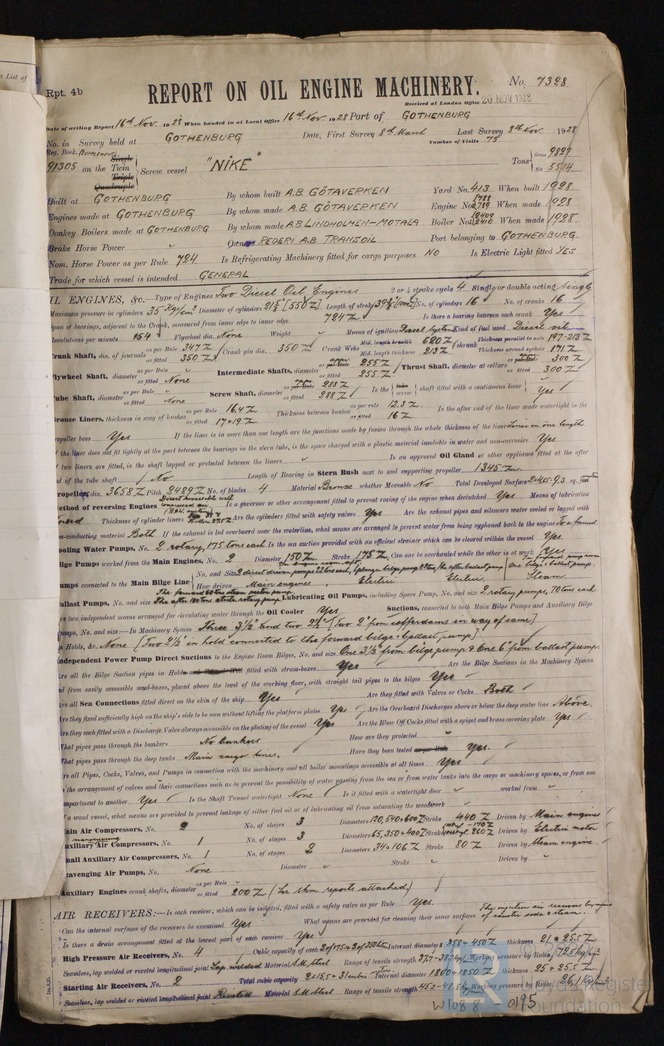 Rpt. 4b
REPORT ON OIL ENGINE MACHINERY.
No. 7328
Received at London Office 20 NOV 1928
Date of writing Report 16th Nov. 1928 When handed in at Local Office 16th Nov. 1928 Port of GOTHENBURG
No. in Survey held at GOTHENBURG Date, First Survey 8th March Last Survey 8th Nov. 1928
Reg. Book. Number of Visits 75
91305 on the Single Twin Triple Quadruple Screw vessel "NIKE" Tons Gross Net 5514
Built at GOTHENBURG By whom built A.B. GÖTAVERKEN Yard No. 413 When built 1928
Engines made at GOTHENBURG By whom made A.B. GÖTAVERKEN Engine No. When made 1928
Donkey Boilers made at GOTHENBURG By whom made A.B. LINDHOLMEN-MOTALA Boiler No. When made 1928
Brake Horse Power " Owners REDERI A.B. TRANSOIL Port belonging to GOTHENBURG
Nom. Horse Power as per Rule 724 Is Refrigerating Machinery fitted for cargo purposes NO Is Electric Light fitted YES
Trade for which vessel is intended GENERAL
OIL ENGINES, &c.—Type of Engines Two Diesel Oil Engines 2 or 4 stroke cycle 4 Single or double acting Single
Maximum pressure in cylinders 35 Kg/cm² Diameter of cylinders Length of stroke No. of cylinders 16 No. of cranks 16
Span of bearings, adjacent to the Crank, measured from inner edge to inner edge Is there a bearing between each crank Yes
Revolutions per minute Flywheel dia. None Weight Means of ignition Kind of fuel used Diesel oil
Crank Shaft, dia. of journals as per Rule 347 as fitted 350 Crank pin dia. 350 Crank Webs Mid. length breadth 620 Mid. length thickness 213 shrunk Thickness parallel to axis Thickness around eyehole 171
Flywheel Shaft, diameter as per Rule as fitted None Intermediate Shafts, diameter 255 as fitted 255 Thrust Shaft, diameter at collars 300 as fitted 300
Tube Shaft, diameter as per Rule as fitted None Screw Shaft, diameter 288 as fitted 288 Is the shaft fitted with a continuous liner Yes
Bronze Liners, thickness in way of bushes as per Rule 16.4 as fitted 17+19 Thickness between bushes as per Rule 12.3 as fitted 16 Is the after end of the liner made watertight in the
propeller boss Yes If the liner is in more than one length are the junctions made by fusion through the whole thickness of the liner Liner in one length
If the liner does not fit tightly at the part between the bearings in the stern tube, is the space charged with a plastic material insoluble in water and non-corrosive Yes
If two liners are fitted, is the shaft lapped or protected between the liners Is an approved Oil Gland or other appliance fitted at the after
end of the tube shaft No Length of Bearing in Stern Bush next to and supporting propeller 1345
Propeller, dia. 3658 Pitch 2489 No. of blades 4 Material Bronze whether Moveable No Total Developed Surface sq. feet
Method of reversing Engines Is a governor or other arrangement fitted to prevent racing of the engine when declutched Yes Means of lubrication
forced Thickness of cylinder liners Are the cylinders fitted with safety valves Yes Are the exhaust pipes and silencers water cooled or lagged with
non-conducting material Both If the exhaust is led overboard near the waterline, what means are arranged to prevent water from being syphoned back to the engine To a funnel
Cooling Water Pumps, No. 2 rotary, 175 tons each Is the sea suction provided with an efficient strainer which can be cleared within the vessel Yes
Bilge Pumps worked from the Main Engines, No. 2 Diameter 150 Stroke 175 Can one be overhauled while the other is at work Yes
Pumps connected to the Main Bilge Line No. and Size How driven Main engines Electric Electric Steam
Ballast Pumps, No. and size Lubricating Oil Pumps, including Spare Pump, No. and size 2 rotary pumps, 70 tons each
Are two independent means arranged for circulating water through the Oil Cooler Yes Suctions, connected to both Main Bilge Pumps and Auxiliary Bilge
Pumps, No. and size:—In Machinery Spaces Three 3½" and two 2½" [Two 2" from cofferdams in way of same]
In Holds, &c. None [Two 2½" in hold connected to the forward bilge & ballast pump]
Independent Power Pump Direct Suctions to the Engine Room Bilges, No. and size One 3½" from bilge pump & One 6" from ballast pump
Are all the Bilge Suction pipes in Holds fitted with strum-boxes Yes Are the Bilge Suctions in the Machinery Spaces
led from easily accessible mud-boxes, placed above the level of the working floor, with straight tail pipes to the bilges Yes
Are all Sea Connections fitted direct on the skin of the ship Yes Are they fitted with Valves or Cocks Both
Are they fixed sufficiently high on the ship's side to be seen without lifting the platform plates Yes Are the Overboard Discharges above or below the deep water line Above
Are they each fitted with a Discharge Valve always accessible on the plating of the vessel Yes Are the Blow Off Cocks fitted with a spigot and brass covering plate Yes
What pipes pass through the bunkers No bunkers How are they protected
What pipes pass through the deep tanks Main cargo lines Have they been tested Yes
Are all Pipes, Cocks, Valves, and Pumps in connection with the machinery and all boiler mountings accessible at all times Yes
Is the arrangement of valves and their connections such as to prevent the possibility of water passing from the sea or from water tanks into the cargo or machinery spaces, or from one
compartment to another Yes Is the Shaft Tunnel watertight None Is it fitted with a watertight door worked from
If a wood vessel, what means are provided to prevent leakage of either fuel oil or of lubricating oil from saturating the woodwork
Main Air Compressors, No. 2 No. of stages 3 Diameters 120,540+600 Stroke 440 Driven by Main engines
Auxiliary Air Compressors, No. 1 No. of stages 3 Diameters 65,350+400 Stroke Driven by Electric motor
Small Auxiliary Air Compressors, No. 1 No. of stages 2 Diameters 34+106 Stroke 80 Driven by Steam engine
Scavenging Air Pumps, No. None Diameter Stroke Driven by
Auxiliary Engines crank shafts, diameter as per Rule as fitted 200 (See Skm. reports attached)
AIR RECEIVERS:—Is each receiver, which can be isolated, fitted with a safety valve as per Rule Yes
Can the internal surfaces of the receivers be examined Yes What means are provided for cleaning their inner surfaces
Is there a drain arrangement fitted at the lowest part of each receiver Yes
High Pressure Air Receivers, No. 4 Cubic capacity of each Internal diameter 350+450 thickness 21+25.5
Seamless, lap welded or riveted longitudinal joint Lap welded Material S.M. Steel Range of tensile strength Working pressure by Rules
Starting Air Receivers, No. 2 Total cubic capacity Internal diameter 1800+1850 thickness 25+25.5
Seamless, lap welded or riveted longitudinal joint Riveted Material S.M. Steel Range of tensile strength Working pressure by Rules
Lloyd's Register
Foundation
W1088 0195